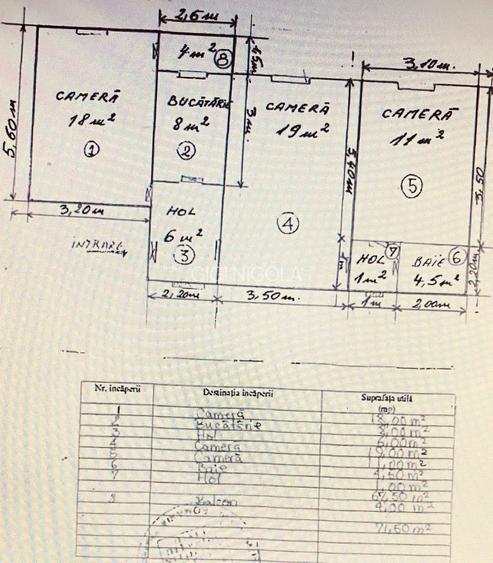 2,6 m
3,10 m
4 m² 8
CAMERĂ
18 m²
1
BUCĂTĂRIE
8 m²
2
3 m.
CAMERĂ
19 m²
4
CAMERĂ
11 m²
5
5,60 m
5,40 m
3,20 m
INTRARE
HOL
6 m²
3
HOL 7
1 m²
BAIE 6
4,5 m²
2,20 m
2,20 m
3,50 m.
1 m
2,00 m
Nr. încăperii Destinația încăperii Suprafața utilă
(mp)
1 Cameră 18,00 m²
2 Bucătărie 8,00 m²
3 Hol 6,00 m²
4 Cameră 19,00 m²
5 Cameră 11,00 m²
6 Baie 4,50 m²
7 Hol 1,00 m²
67,50 m²
8 Balcon 4,00 m²
71,50 m²